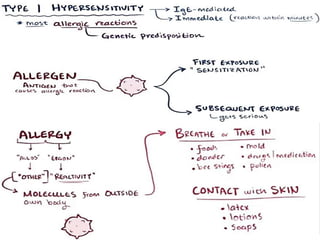 TYPE I HYPERSENSITIVITY
→ IgE-mediated
→ Immediate (reactions within minutes)
* most allergic reactions
→ Genetic predisposition
ALLERGEN
ANTIGEN that
causes allergic reaction
FIRST EXPOSURE
"SENSITIZATION"
SUBSEQUENT EXPOSURE
↳ gets serious
ALLERGY
"ALLOS" "ERGON"
"OTHER" "REACTIVITY"
→ MOLECULES from OUTSIDE
own body
BREATHE or TAKE IN
• food
• dander
• bee stings
• mold
• drugs/medication
• pollen
CONTACT with SKIN
• latex
• lotions
• soaps